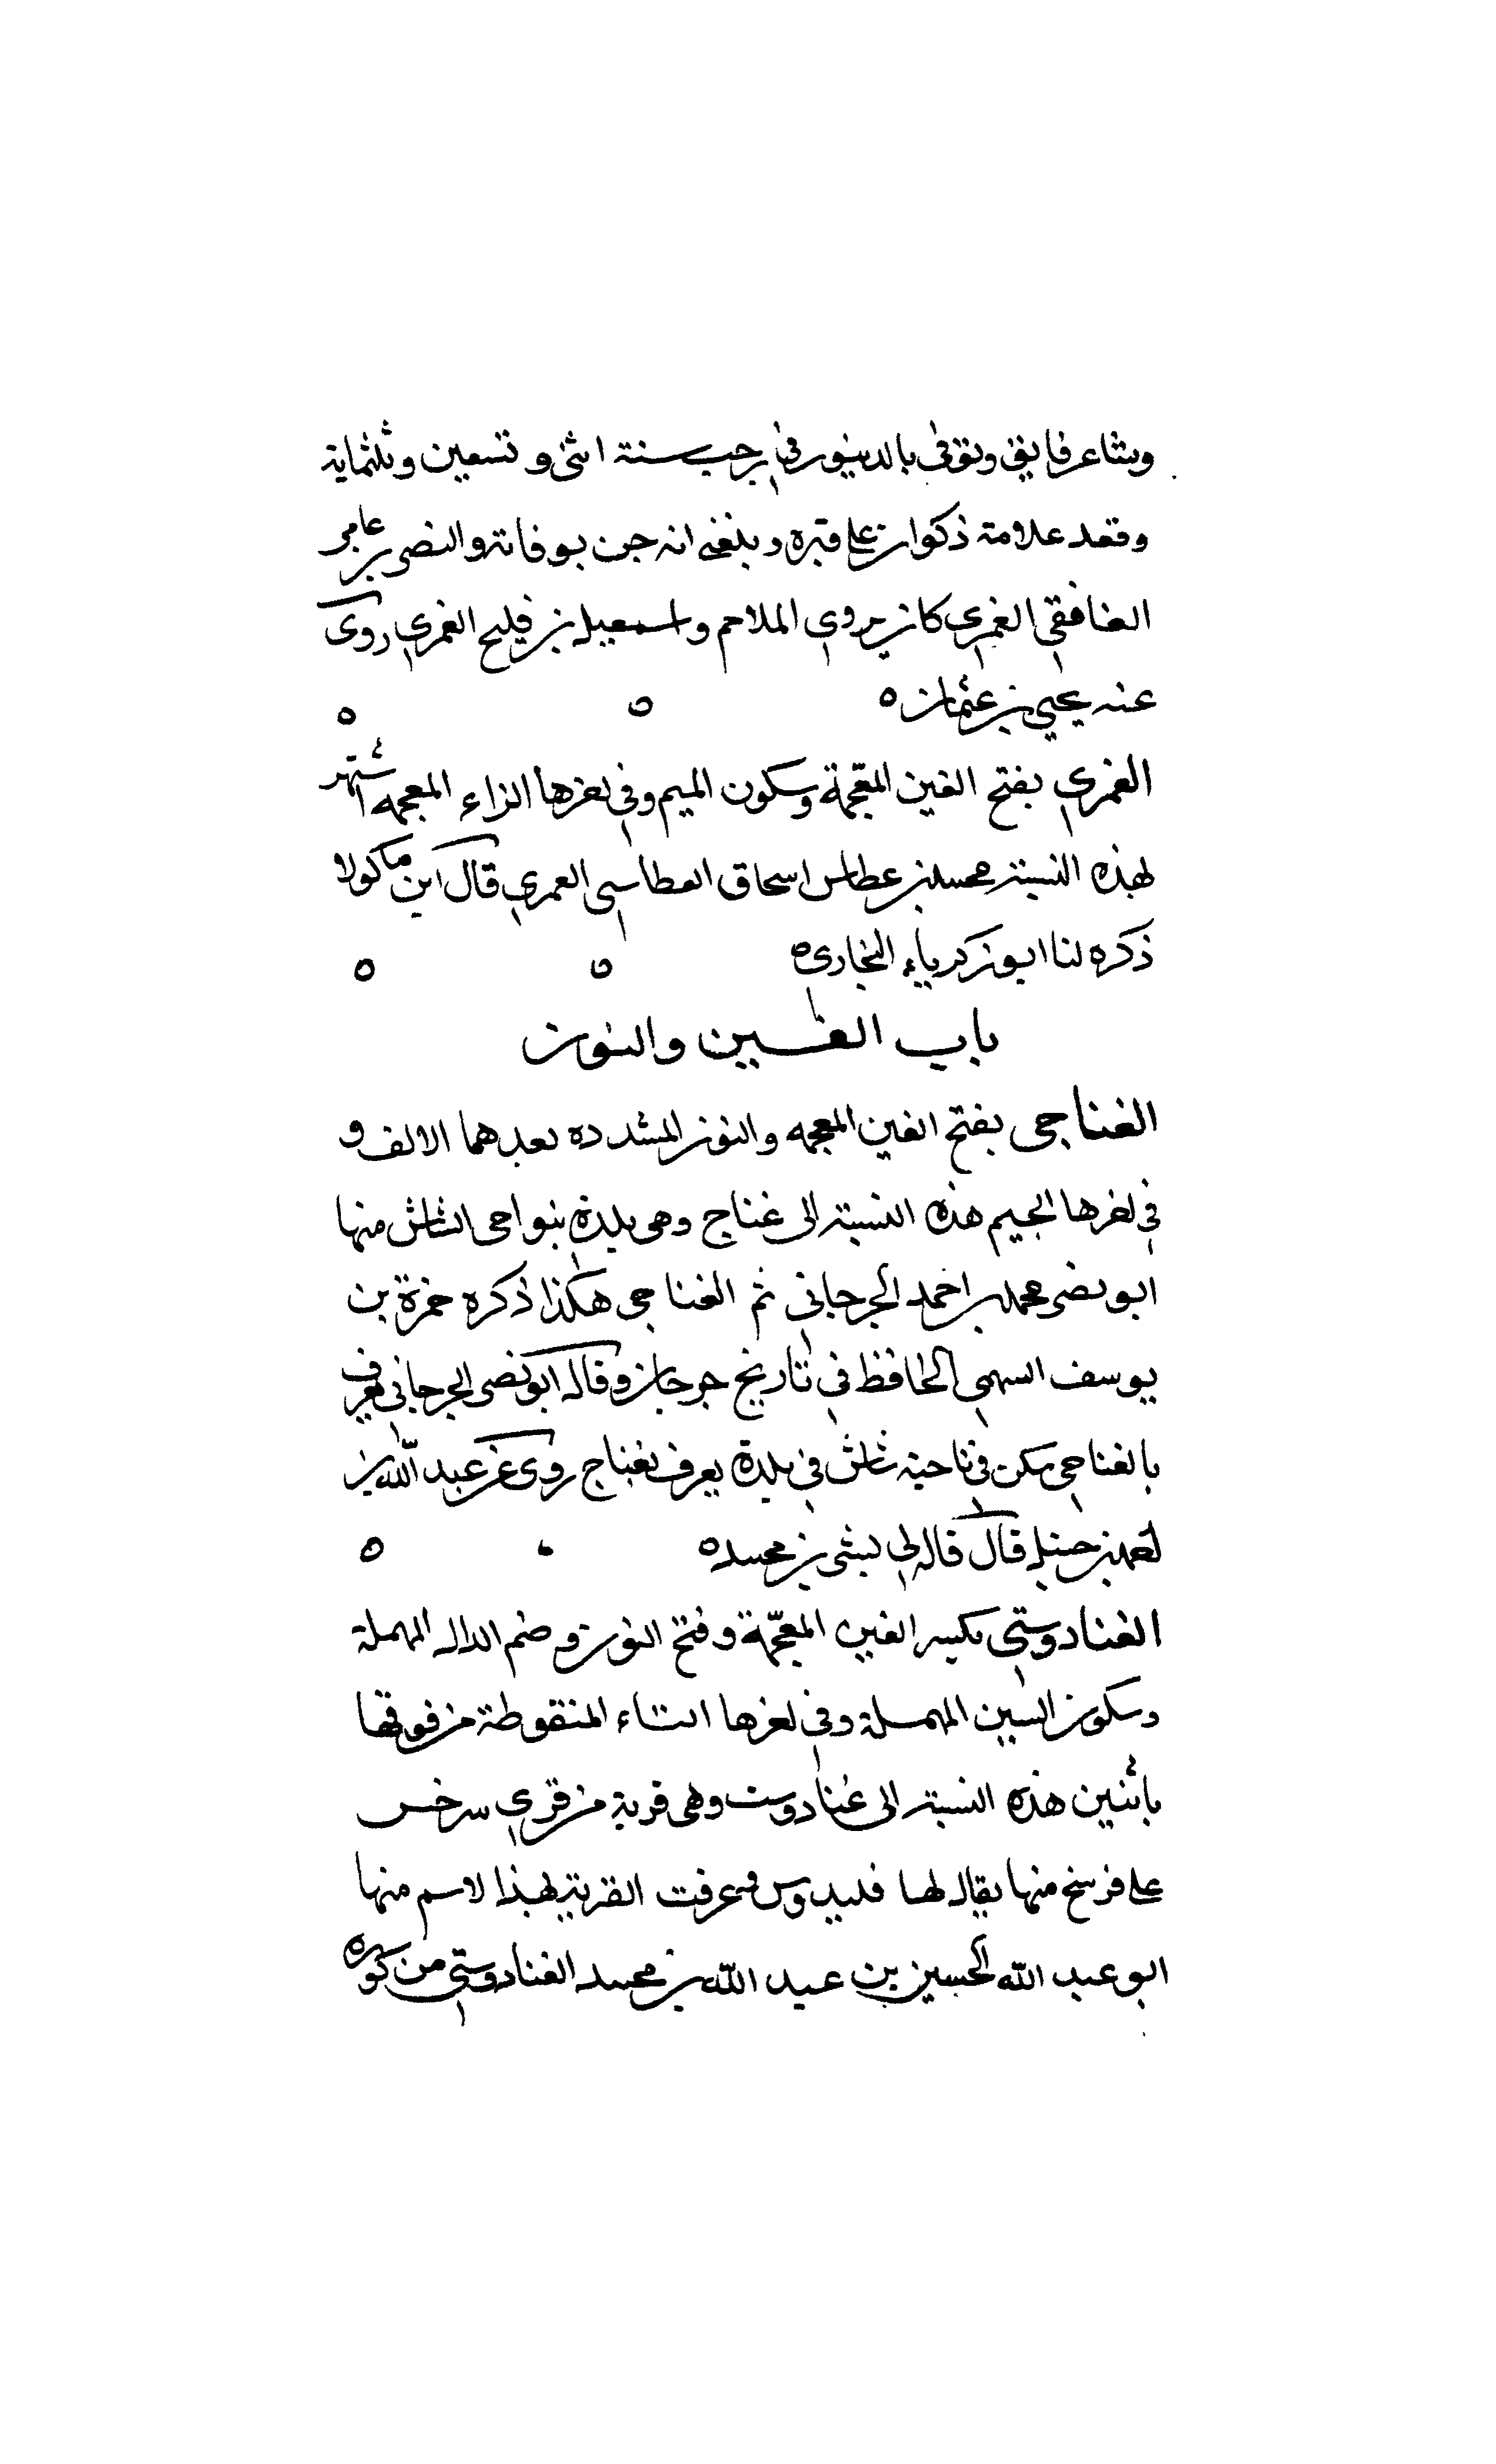 وشاعر فايق وتوفى بالدينور في رجب سنة اثنى و تسعين وثلثماية
وقعد علامة ذكوان على قبره وبلغني انه جن بوفاته والنضر بن عامر
الغافقي الغمري كان يروي الملاحم واسمعيل بن فليح الغمري روى
عنه يحيي بن عثمان ه ه ه
الغمزي بفتح الغين المعجمة وسكون الميم وفي اخرها الزاء المعجمه اشتهر
بهذه النسبة محمد بن عطاس اسحاق العطاسي العمري قال ابن ماكولا
ذكره لنا ابو زكرياء البخاري ه ه ه
باب الغين والنون
الغناجي بفتح الغين المعجمه والنون المشدده بعدهما الالف و
في اخرها الجيم هذه النسبة الى غناج وهى بلدة بنواحى الشاش منها
ابو نصر محمد بن احمد الجرجاني ثم الغناجى هكذا ذكره حمزة بن
يوسف السهمي الحافظ في تاريخ جرجان وقال ابو نصر الجرجاني يعرف
بالغناجي سكن في ناحية شاش في بلدة يعرف بغناج روى عن عبد الله بن
احمد بن حنبل قال قال لي بشر بن محمد ه ه
الغنادوستي بكسر الغين المعجمة وفتح النون وضم الدال المهملة
وسكون السين المهملة وفي اخرها التاء المنقوطة من فوقها
باثنين هذه النسبة الى غنادوست وهى قرية من قري سرخس
على فرسخ منها يقال لها فليدوس وعرفت القرية بهذا لاسم منها
ابو عبد الله الحسين بن عبد الله بن محمد الغنادوستي من كوره